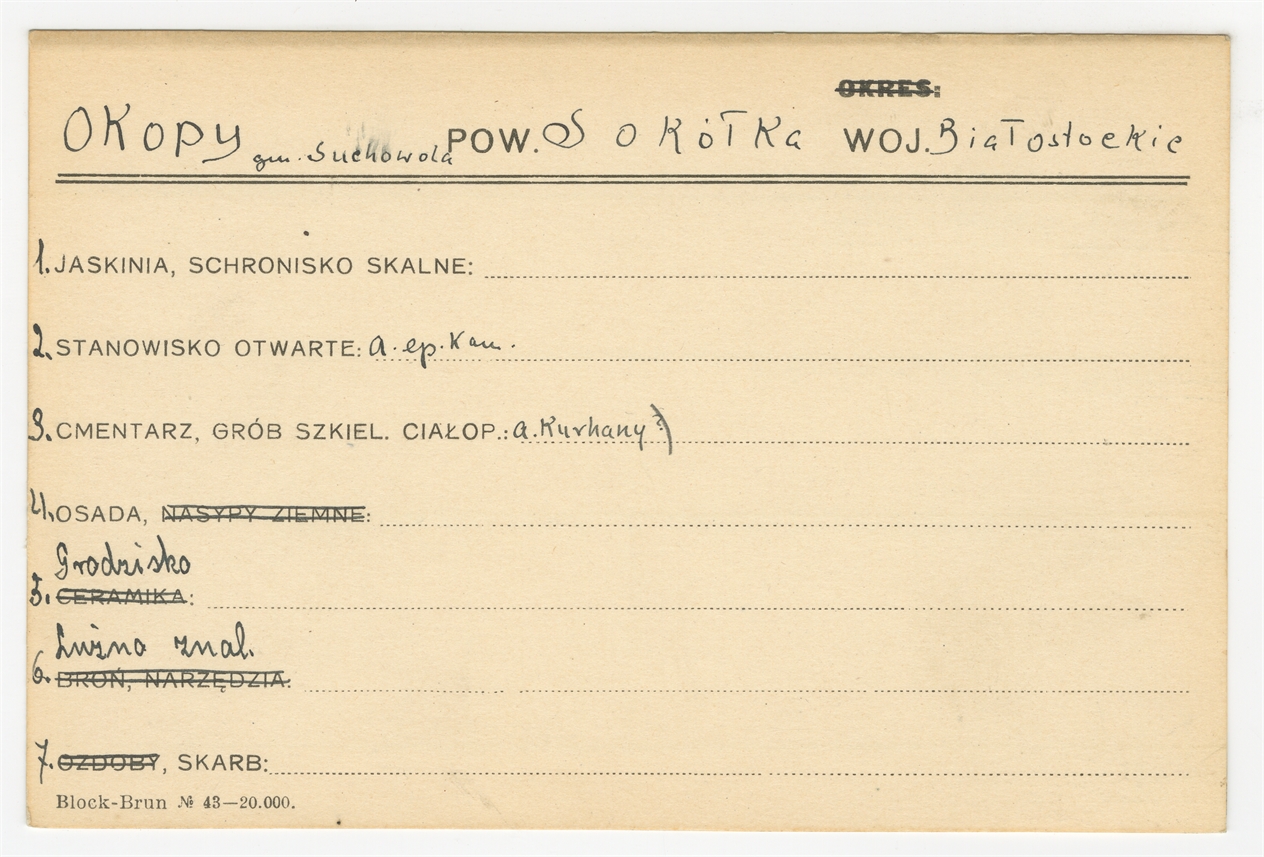 OKRES:
OKopy gm. Suchowola POW. SOKółKa WOJ. Białostockie
1. JASKINIA, SCHRONISKO SKALNE:
2. STANOWISKO OTWARTE: a. ep. Kam.
3. CMENTARZ, GRÓB SZKIEL. CIAŁOP.: a. Kurhany?)
4. OSADA, NASYPY ZIEMNE:
Grodzisko
5. CERAMIKA:
Luźno znal.
6. BROŃ, NARZĘDZIA:
7. OZDOBY, SKARB:
Block-Brun № 43—20.000.